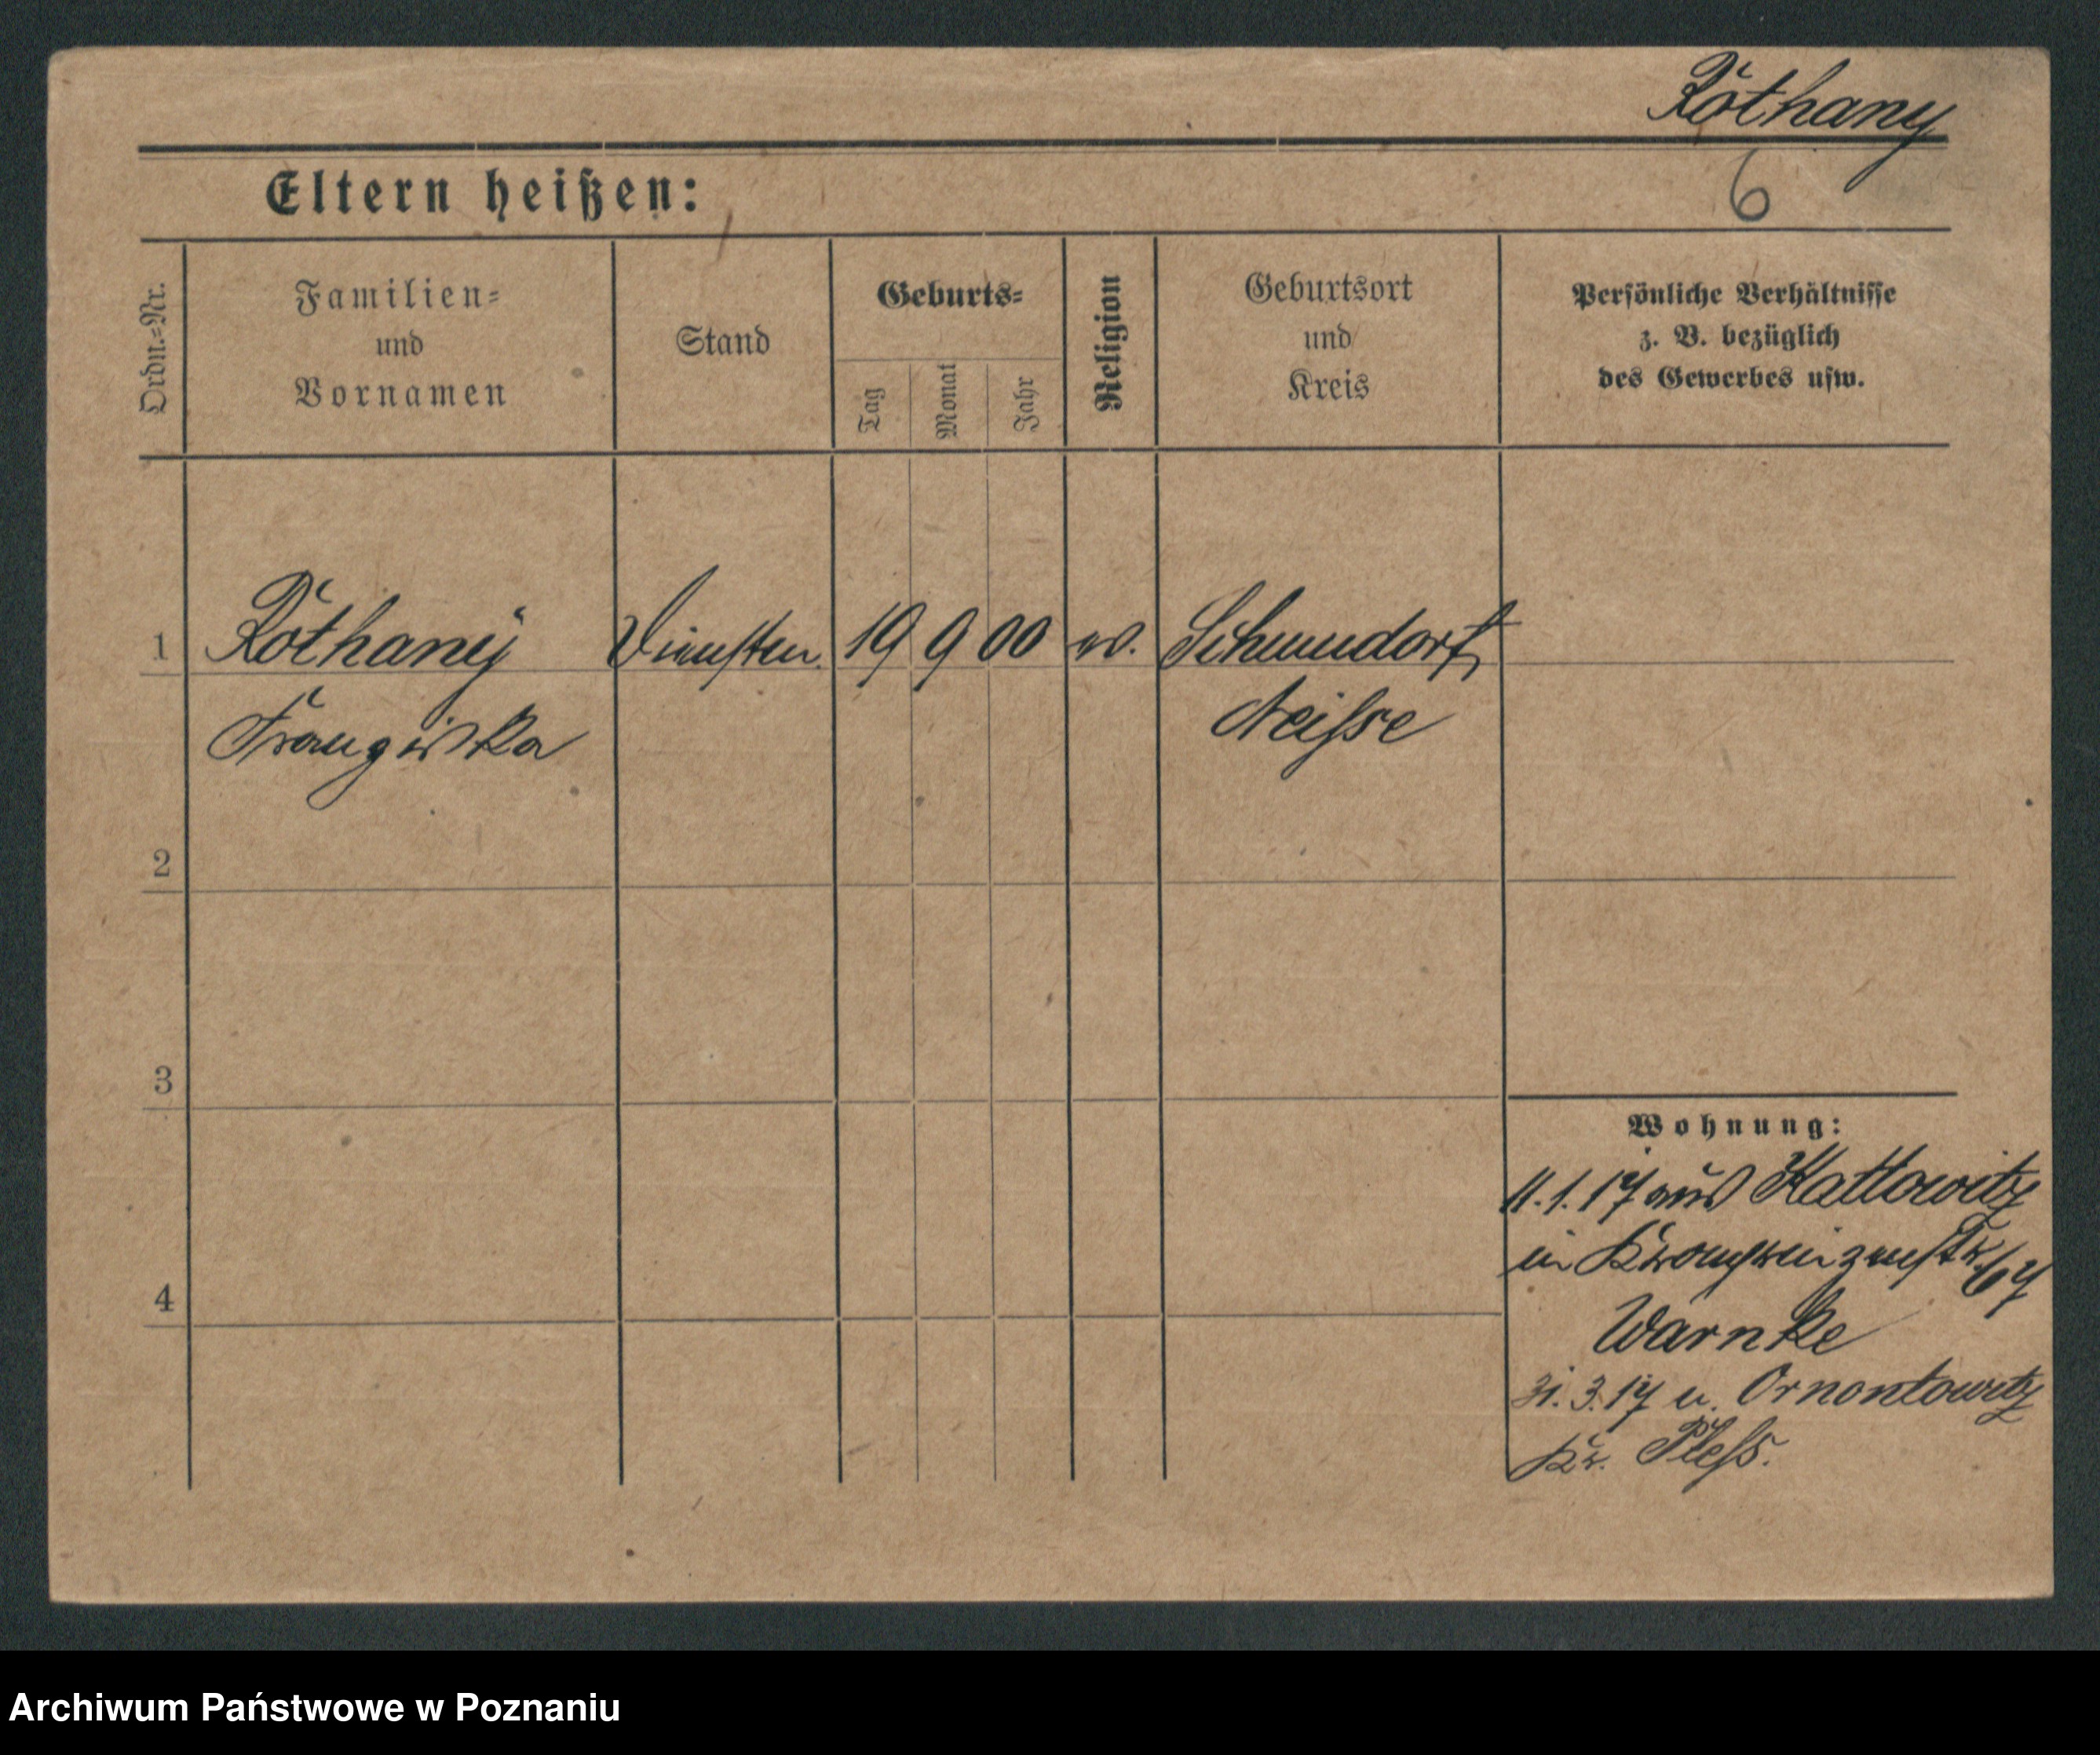 Röthany
Eltern heißen:
6
Ordn.=Nr.
Familien=
und
Vornamen
Stand
Geburts=
Tag
Monat
Jahr
Religion
Geburtsort
und
Kreis
Persönliche Verhältnisse
z. B. bezüglich
des Gewerbes usw.
1 Röthany 19 9 00
Franziska Neisse
2
3
Wohnung:
11.1.17 aus Kattowitz
in Kronprinzenstr.
4
Warnke
31.3.17 n. Ornontowitz
Kr. Pleß.
Archiwum Państwowe w Poznaniu